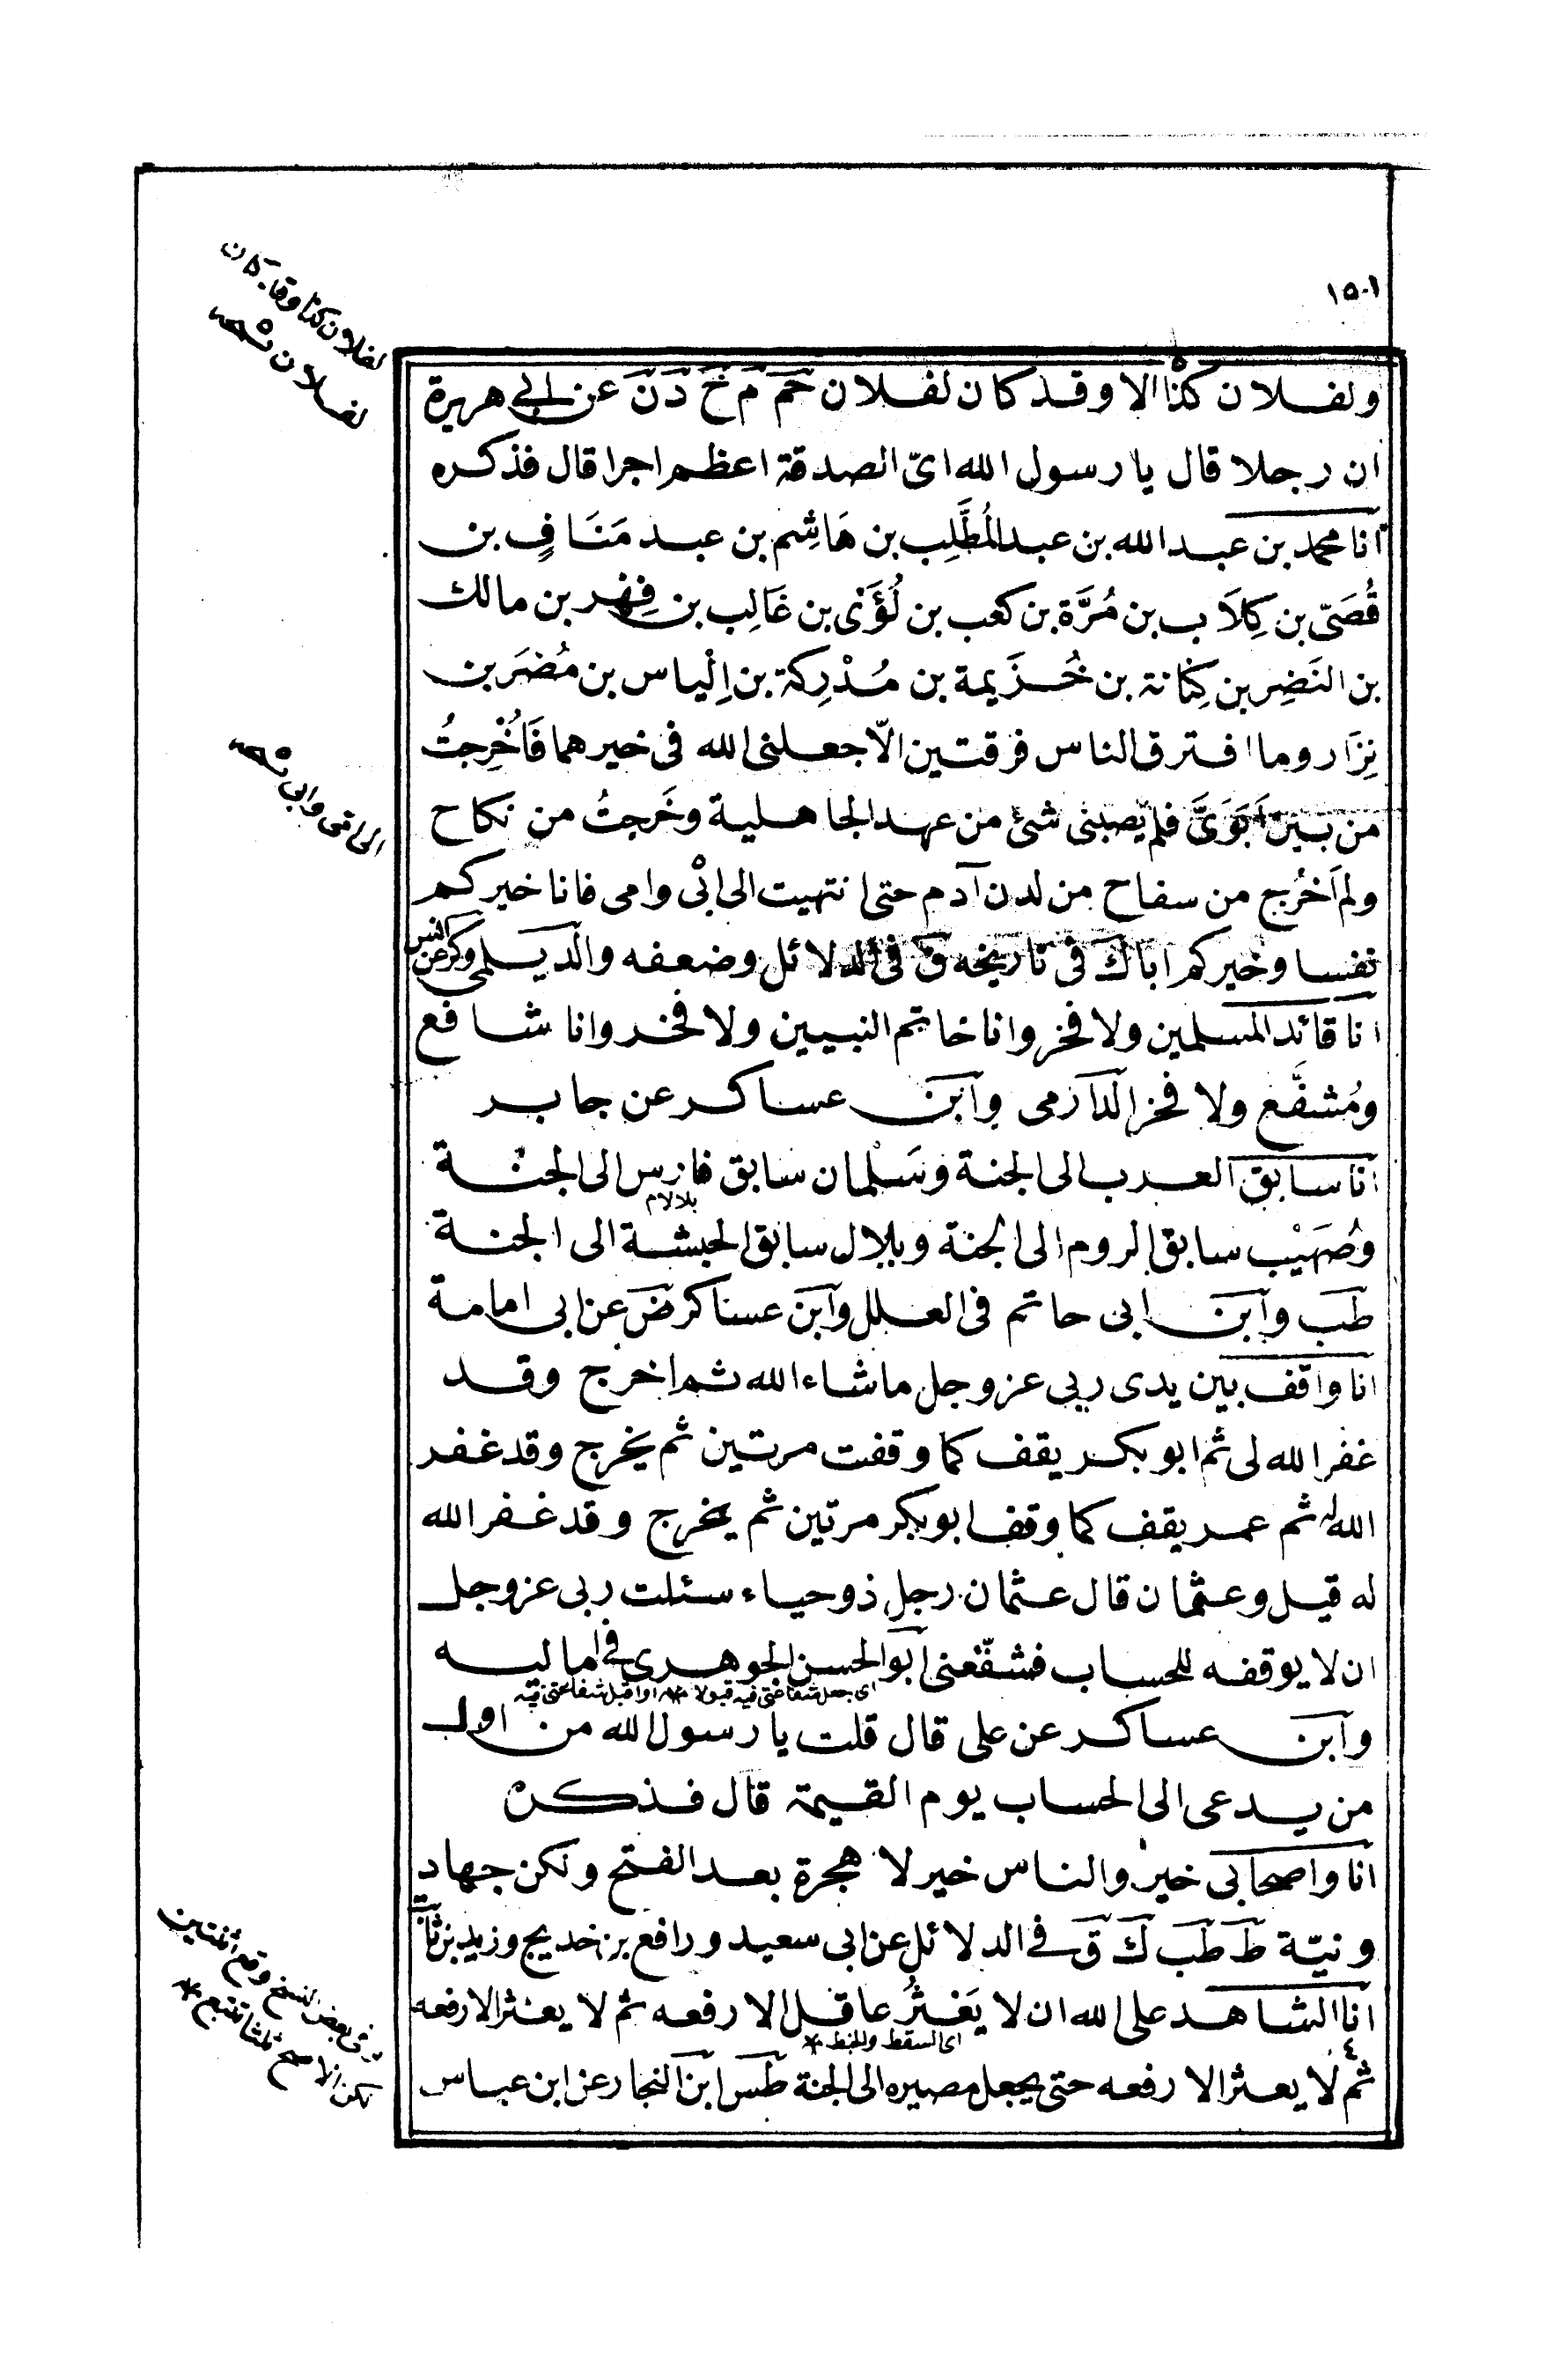 ١٥٠١
ولفلان كذا الا وقد كان لفلان حم م خ د ن عن ابي هريرة
ان رجلا قال يا رسول الله اىّ الصدقة اعظم اجرا قال فذكره
انا محمد بن عبد الله بن عبد المُطَّلِب بن هَاشِم بن عبد مَنَافٍ بن
قُصَىّ بن كِلَاب بن مُرَّة بن كعب بن لُؤَىّ بن غَالِب بن فِهْر بن مالك
بن النَضِر بن كِنَانة بن خُزَيمة بن مُدْرِكة بن اِلْياس بن مُضَر بن
نِزَار وما افترق الناس فرقتين الّا جعلنى الله فى خيرهما فَاُخْرِجتُ
من بين اَبَوَىَّ فلم يصبنى شئ من عهد الجاهلية وخَرجتُ من نكاح
ولم اَخرُج من سفاح من لدن آدم حتى انتهيت الى ابى وامى فانا خيركم
نفسا وخيركم ابا ك فى تاريخه ق فى الدلائل وضعفه والديلمى وكر عن انس
انا قائد المسلمين ولا فخر وانا خاتم النبيين ولا فخر وانا شافع
ومُشفَّع ولا فخر الدارمى وابن عساكر عن جابر
انا سابق العرب الى الجنة وسَلْمان سابق فارس الى الجنة
وصُهَيْب سابق الروم الى الجنة وبلال سابق الحبشة الى الجنة
طب وابن ابى حاتم فى العلل وابن عساكر ض عن ابى امامة
انا واقف بين يدى ربى عز وجل ماشاء الله ثم اخرج وقد
غفر الله لى ثم ابو بكر يقف كما وقفت مرتين ثم يخرج وقد غفر
الله له ثم عمر يقف كما وقف ابو بكر مرتين ثم يخرج وقد غفر الله
له قيل وعثمان قال عثمان رجل ذو حياء سئلت ربى عز وجل
ان لا يوقفه للحساب فشفّعنى ابو الحسن الجوهرى فى اماليه
اى جعل شفاعتى فيه قبولا او اقبل شفاعتى فيه
وابن عساكر عن على قال قلت يا رسول الله من اول
من يدعى الى الحساب يوم القيمة قال فذكره
انا واصحابى خير والناس خير لا هجرة بعد الفتح ولكن جهاد
ونيّة ط طب ك ق فى الدلائل عن ابى سعيد ورافع بن خديج وزيد بن ثابت
انا الشاهد على الله ان لا يَعْثُرُ عاقل الا رفعه ثم لا يعثر الا رفعه
اى السقط والخبط
ثم لا يعثر الا رفعه حتى يجعل مصيره الى الجنة طس ابن النجار عن ابن عباس
لفلان كذا وقد كان
لفلان نسخه
الى امى وابى نسخه
فى بعض النسخ وقع اثنتين
لكن الاصح ثلثا تتبع